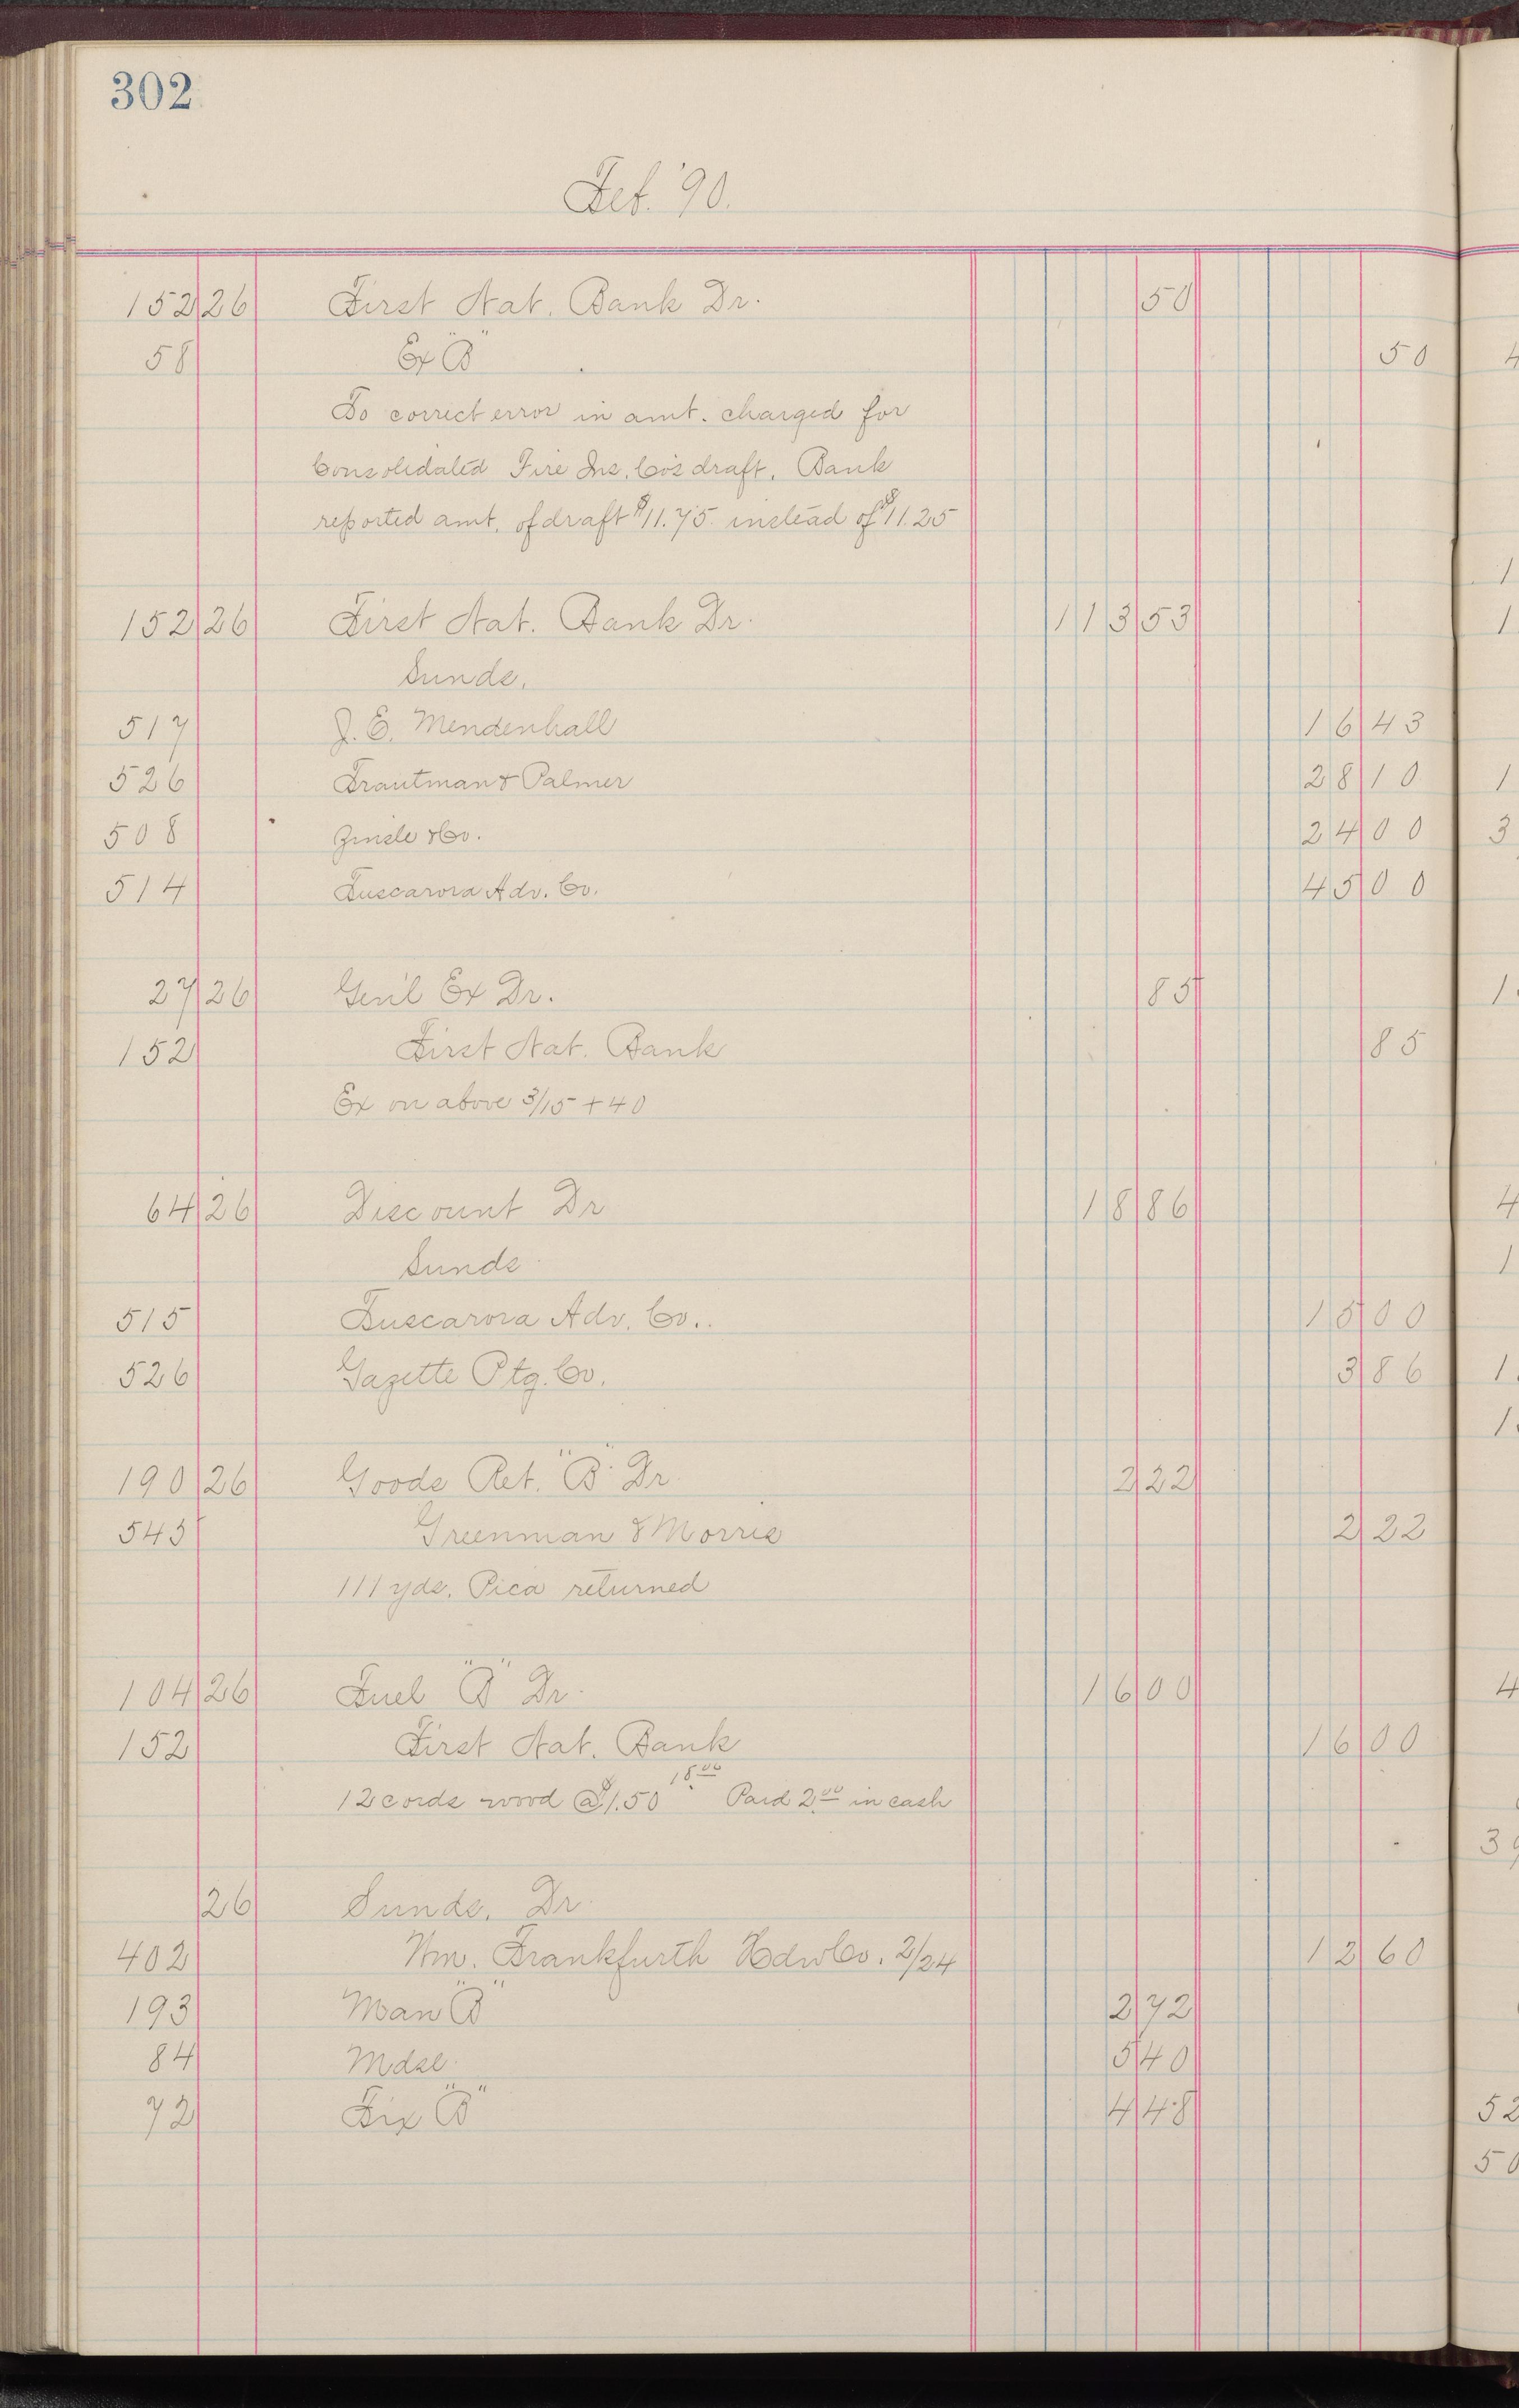 302
Feb. '90.
152 26 First Nat. Bank Dr. 50
58 Ex "B" 50
To correct error in amt. charged for
Consolidated Fire Ins. Co's draft. Bank
reported amt. of draft $11.75 instead of $11.25
152 26 First Nat. Bank Dr. 113 53
Sunds.
517 J. E. Mendenhall 16 43
526 Trautman & Palmer 28 10
508 & Co. 24 00
514 Tuscarora Adv. Co. 45 00
27 26 Gen'l Ex Dr. 85
152 First Nat. Bank 85
Ex on above 3/15 + 40
64 26 Discount Dr 18 86
Sunds
515 Tuscarora Adv. Co.. 15 00
526 Gazette Ptg. Co. 3 86
190 26 Goods Ret. "B" Dr. 2 22
545 Greenman & Morris 2 22
111 yds. Pica returned
104 26 Fuel "B" Dr. 16 00
152 First Nat. Bank 16 00
12 cords wood @ $1.50 18.00 Paid 2.00 in cash
26 Sunds. Dr.
402 Wm. Frankfurth Hdw Co. 2/24 12 60
193 Man "B" 2 72
84 Mdse. 5 40
72 Fix "B" 4 48